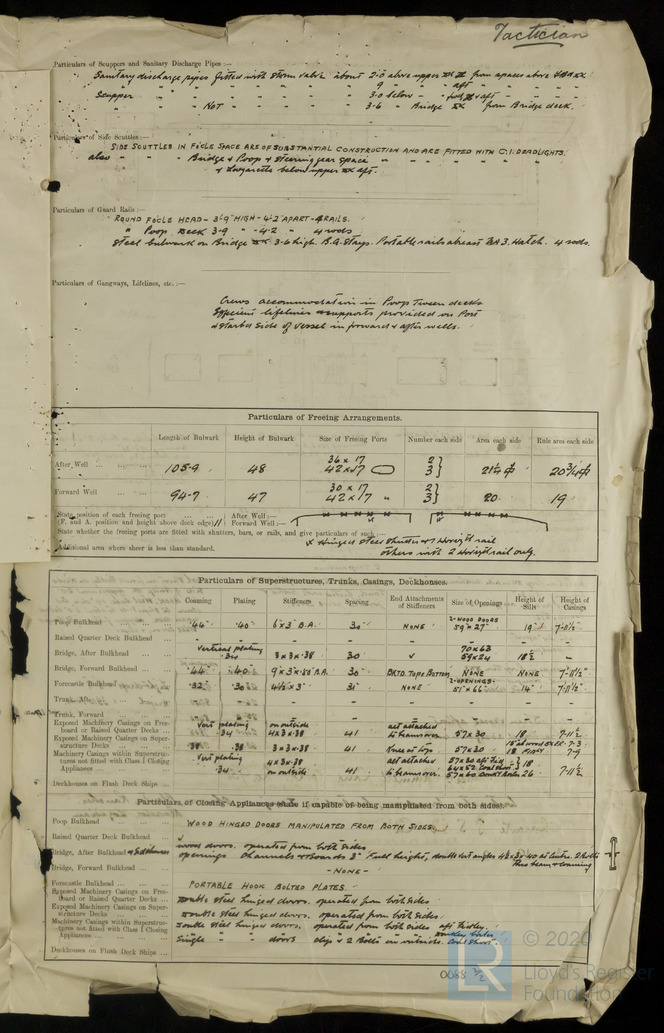 Tactician
Particulars of Scuppers and Sanitary Discharge Pipes :—
Sanitary discharge pipes fitted with storm valve about 2-0 above upper from spaces above
" " " " " 9 " aft " " " " "
Scupper " " " " 3-0 below " "
" " NOT " " 3-6 " Bridge from Bridge deck.
Particulars of Side Scuttles :—
SIDE SCUTTLES IN FO'CLE SPACE ARE OF SUBSTANTIAL CONSTRUCTION AND ARE FITTED WITH C.I. DEADLIGHTS.
also " " " Bridge & Poop & steering gear space " " " " " "
& Lazarette below upper aft.
Particulars of Guard Rails :—
ROUND FO'CLE HEAD - 3'9" HIGH - 4'2" APART - 4 RAILS.
" Poop Deck 3-9 " -4-2 " 4 rods
Steel bulwark on Bridge 3-6 high. B.A. Stays. Portable rails abreast No 3. Hatch. 4 rods.
Particulars of Gangways, Lifelines, etc. :—
Crews accommodation in Poop Tween decks
Efficient lifelines & supports provided on Port
& starbd side of vessel in forward & after wells.
Particulars of Freeing Arrangements.
Length of Bulwark Height of Bulwark Size of Freeing Ports Number each side Area each side Rule area each side
After Well ... 105-9 48 36 x 17 2
42 x 17 3 } 21¼ 20¾
Forward Well ... 94-7 47 30 x 17 2
42 x 17 " 3 } 20 19
State position of each freeing port ... After Well :—
(F. and A. position and height above deck edge) Forward Well :—
State whether the freeing ports are fitted with shutters, bars, or rails, and give particulars of such :—
x Hinged steel shutters & 1 Horizl rail
Additional area where sheer is less than standard. others with 2 Horizl rail only.
Particulars of Superstructures, Trunks, Casings, Deckhouses.
Coaming Plating Stiffeners Spacing End Attachments of Stiffeners Size of Openings Height of Sills Height of Casings
Poop Bulkhead ... .44 .40 6 x 3 B.A. 30 NONE 2-WOOD DOORS 59 x 27 19" 7-11½"
Raised Quarter Deck Bulkhead ... - - - - - - - -
Bridge, After Bulkhead ... Vertical plating .30 3 x 3 x .38 30 70 x 63
59 x 24 18½ -
Bridge, Forward Bulkhead ... .44 .40 9 x 3 x B.A. 30 BKTD. Top & Bottom NONE NONE 7-11½"
Forecastle Bulkhead ... .32 .30 4½ x 3" 31 NONE 2-OPENINGS- 51 x 66 14" 7-11½"
Trunk, Aft ... - - - - - - -
Trunk, Forward ...
Exposed Machinery Casings on Freeboard or Raised Quarter Decks ... Vert plating .34 on outside 4 x 3 x .38 41 all attached to beams over. 57 x 30 18 7-11½
Exposed Machinery Casings on Superstructure Decks ... .38 .38 3 x 3 x .38 41 Knee at top 57 x 30 7-3
Machinery Casings within Superstructures not fitted with Class I Closing Appliances ... Vert plating .34 4 x 3 x .38 on outside 41 all attached to beams over. 57 x 30 aft Fid.
64 x 52 Coal Shoot } 18
57 x 60 Donky Boiler 26 7-11½
Deckhouses on Flush Deck Ships ...
Particulars of Closing Appliances (state if capable of being manipulated from both sides).
Poop Bulkhead ... WOOD HINGED DOORS MANIPULATED FROM BOTH SIDES.
Raised Quarter Deck Bulkhead ...
Bridge, After Bulkhead ... wood doors. operated from both sides
openings channels & boards 3" Full height, double vert angles at centre. 2 Bolts
Bridge, Forward Bulkhead ... - NONE -
Forecastle Bulkhead ... PORTABLE HOOK BOLTED PLATES.
Exposed Machinery Casings on Freeboard or Raised Quarter Decks ... Double steel hinged doors. operated from both sides.
Exposed Machinery Casings on Superstructure Decks ... Double steel hinged doors. operated from both sides.
Machinery Casings within Superstructures not fitted with Class I Closing Appliances ... Double steel hinged doors. operated from both sides aft Fidley.
Single " " doors clips & 2 Bolts on outside. Coal Shoot.
Deckhouses on Flush Deck Ships ...
0088 ½
© 2020
LR
Lloyd's Register
Foundation